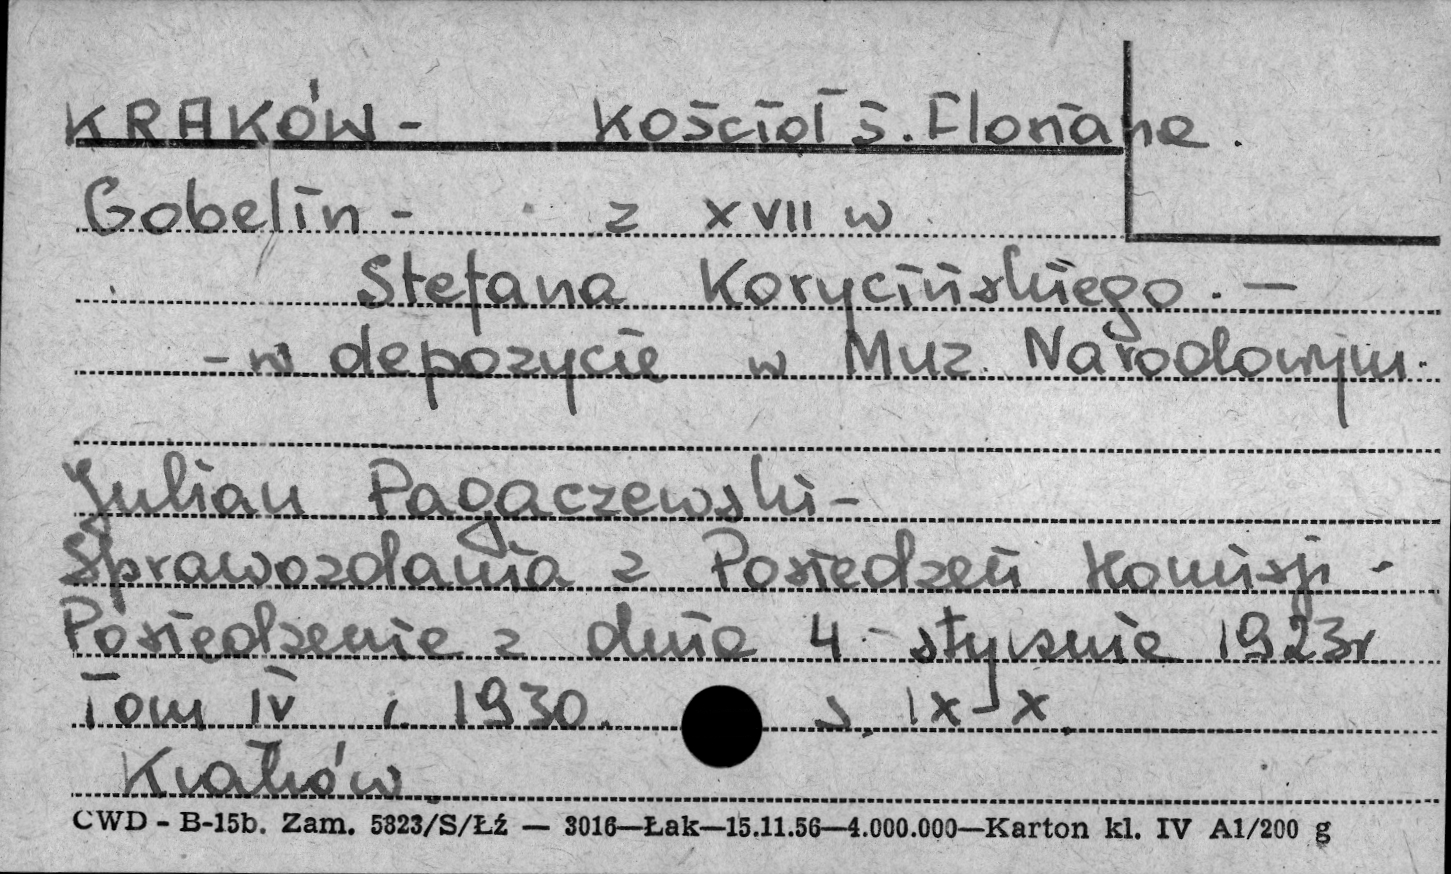 KRAKÓW - Kościół ś. Floriana.
Gobelin - z XVII w
Stefana Korycińskiego. —
- w depozycie w Muz. Narodowym.
Julian Pagaczewski -
Sprawozdania z Posiedzeń Komisji -
Posiedzenie z dnia 4 stycznia 1923r
Tom IV r. 1930. s. IX-X.
Kraków.
CWD - B-15b. Zam. 5323/S/Łź — 3016—Łak—15.11.56—4.000.000—Karton kl. IV A1/200 g